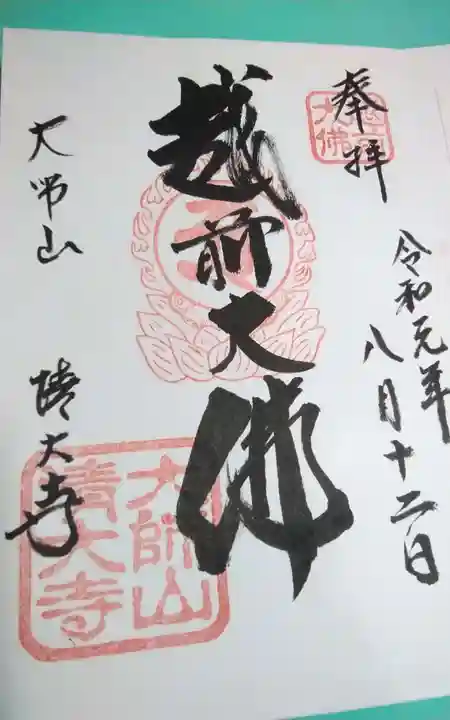 奉拝
令和元年
八月十二日
越前大佛
大师山
清大寺
大師山
清大寺